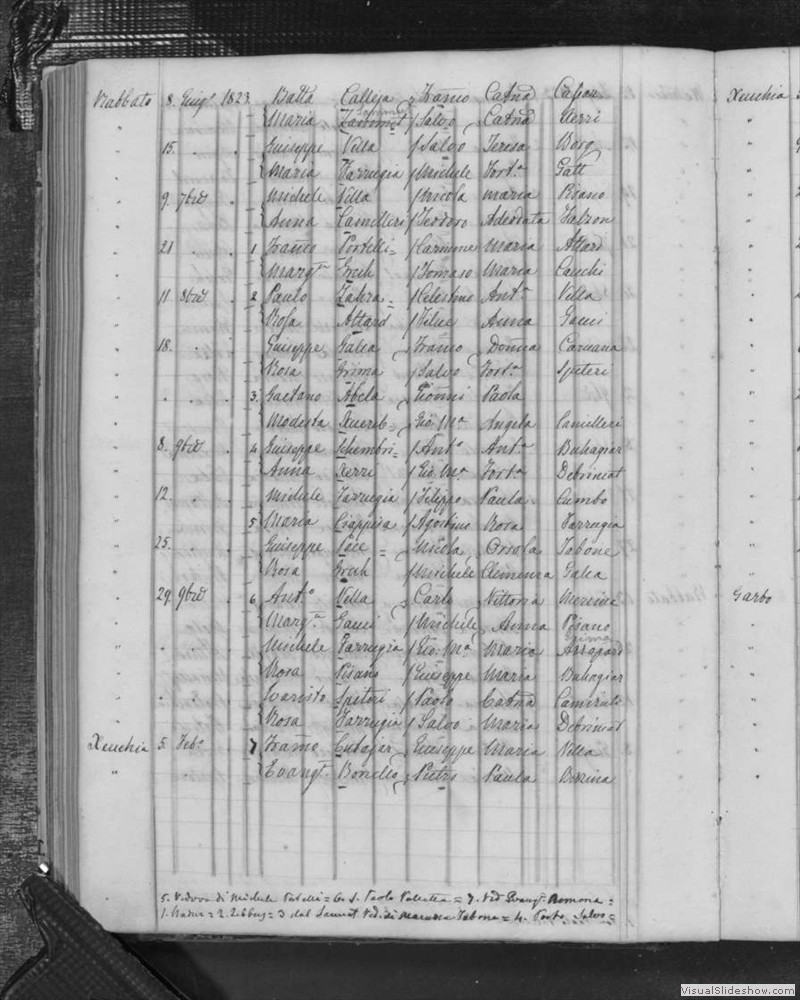 Rabbato 8. Giug.o 1823. Batta Calleja Franco Catna Xenchia
Maria Salvo Catna Xerri
15. Giuseppe Vella Salvo Teresa Borg
Maria Farrugia Michele Fort.a Gatt
9. 7bre Michele Vella Nicola Maria Pisano
Anna Camilleri Teodoro Adeodata Falzon
21 1 Franco Portelli = Carmine Maria Attard
Marg.ta Grech Tomaso Maria Cauchi
11. 8bre 2 Paulo Zahra = Celestino Ant.a Vella
Rosa Attard Felice Anna Gauci
18. Giuseppe Galea Franco Caruana
Rosa Grima Salvo Fort.a Spiteri
3. Gaetano Abela Gionni Paola
Modesta Xuereb = Gio: M.a Angela Camilleri
8. 9bre 4 Giuseppe Schembri = Ant.o Ant.a Buhagiar
Anna Xerri Gio: M.a Fort.a Debrincat
12. Michele Farrugia Filippo Paula Cumbo
5 Maria Agostino Rosa Farrugia
25. Giuseppe Pace = Nicola Orsola Tabone
Rosa Grech Michele Clemenza Galea
29. 9bre 6 Ant.o Vella Carlo Vittoria Garbo
Marg.ta Gauci Michele Anna Pisano
Grima
Michele Farrugia Gio: M.a Maria
Rosa Pisano Giuseppe Maria Buhagiar
Evaristo Spiteri Paolo Catna
Rosa Farrugia Salvo Maria Debrincat
Xeuchia 5. Feb.o 7 Franco Cutajar Giuseppe Maria Vella
Evang.ta Borello Pietro Paula
5. Vedova di Michele Portelli = 6. S. Paolo Valletta = 7. Ved Evang.ta Romona =
1. Nadur = 2. Zebbug = 3 dal Sannat Ved. di Tabone = 4. Porto Salvo =
VisualSlideshow.com